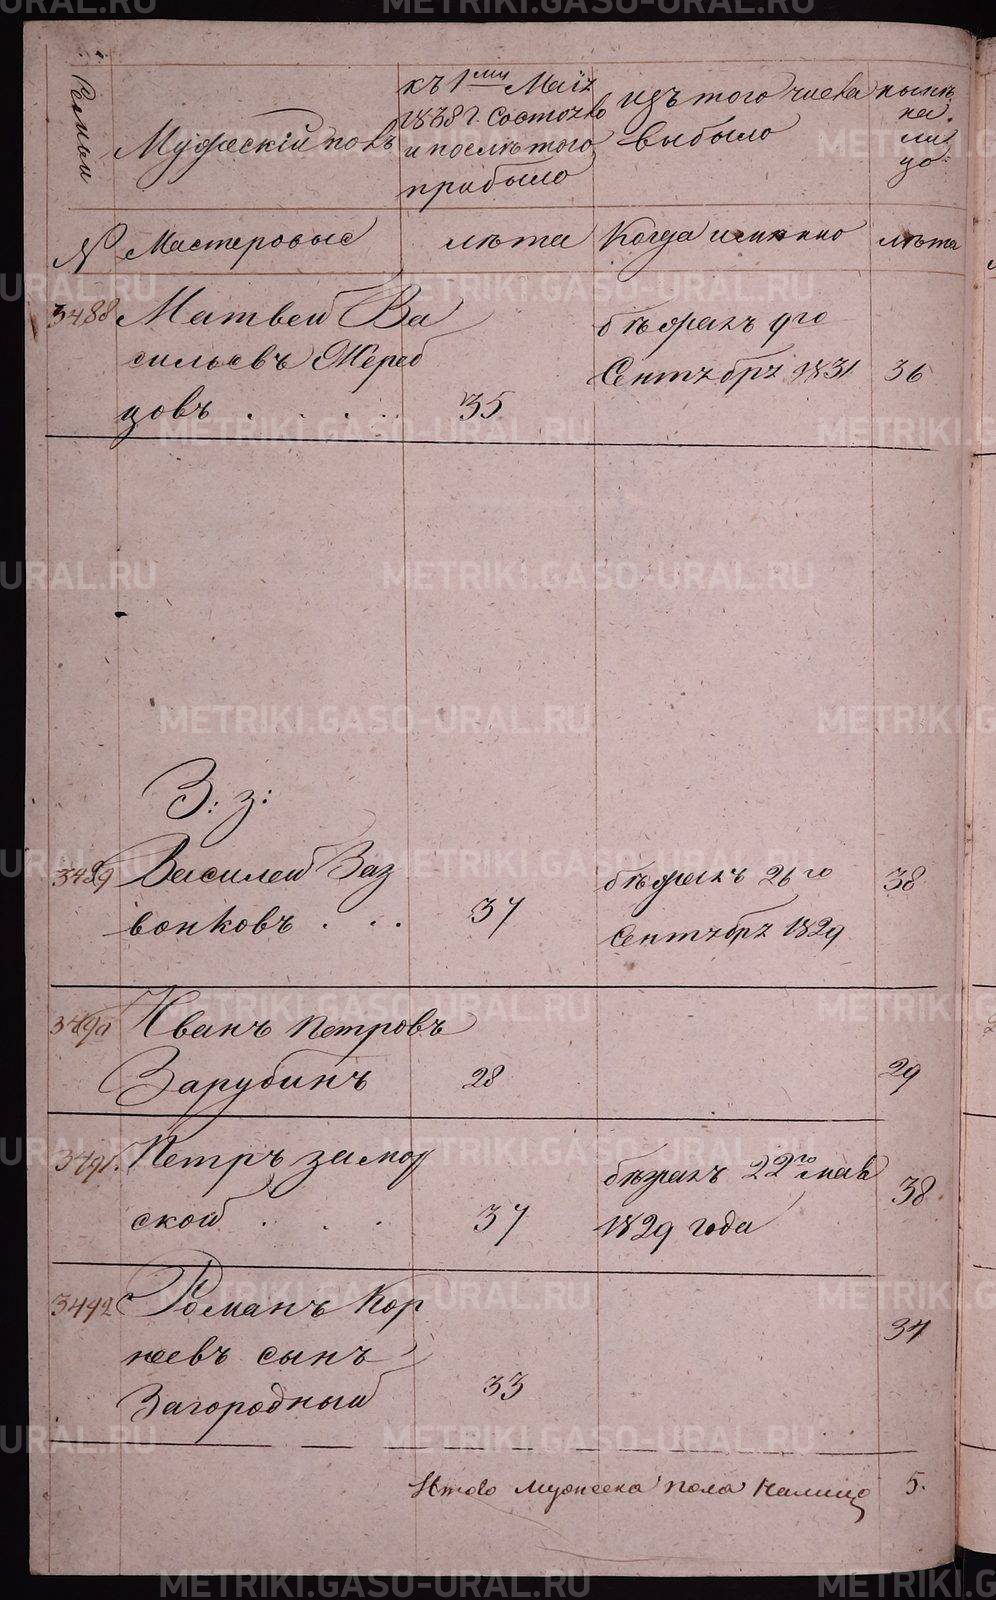 Семьи
Мужескій полъ
къ 1му Маія
1838 г. состояло
и послѣ того
прибыло
изъ того числа
выбыло
нынѣ
на
ли
цо
№ Мастеровыє лѣта Когда именно лѣта
3488 Матвей Ва
сильевъ Жереб
цовъ . . . . . 35
бѣжалъ 9го
Сентября 1831 36
З: з:
3489 Василей Заз
вонковъ . . . 37
бѣжалъ 26го 38
Сентября 1829
3490 Иванъ Петровъ
Зарубинъ 28 29
3491. Петръ замор
ской . . . 37
бѣжалъ 22го мая
1829 года 38
3492 Романъ Кор
неевъ сынъ
Загородный 33 34
Итого мужеска пола налицо 5.
METRIKI.GASO-URAL.RU